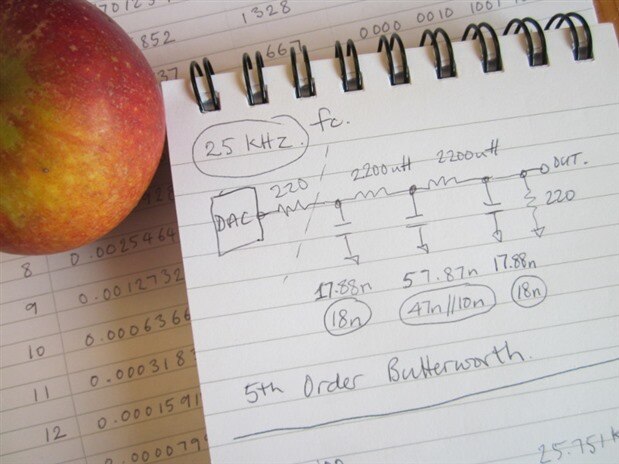 1328
852
667
0.000 0010 1001
37
25 KHz. fc.
220
2200uH
2200uH
DAC
OUT.
220
928
17.88n
57.87n
17.88n
18n
47n//10n
18n
8 0.0025464
9 0.0012732
10 0.0006366
11 0.000318
12 0.0001591
0.0000795
5th Order Butterworth.
25.75+k